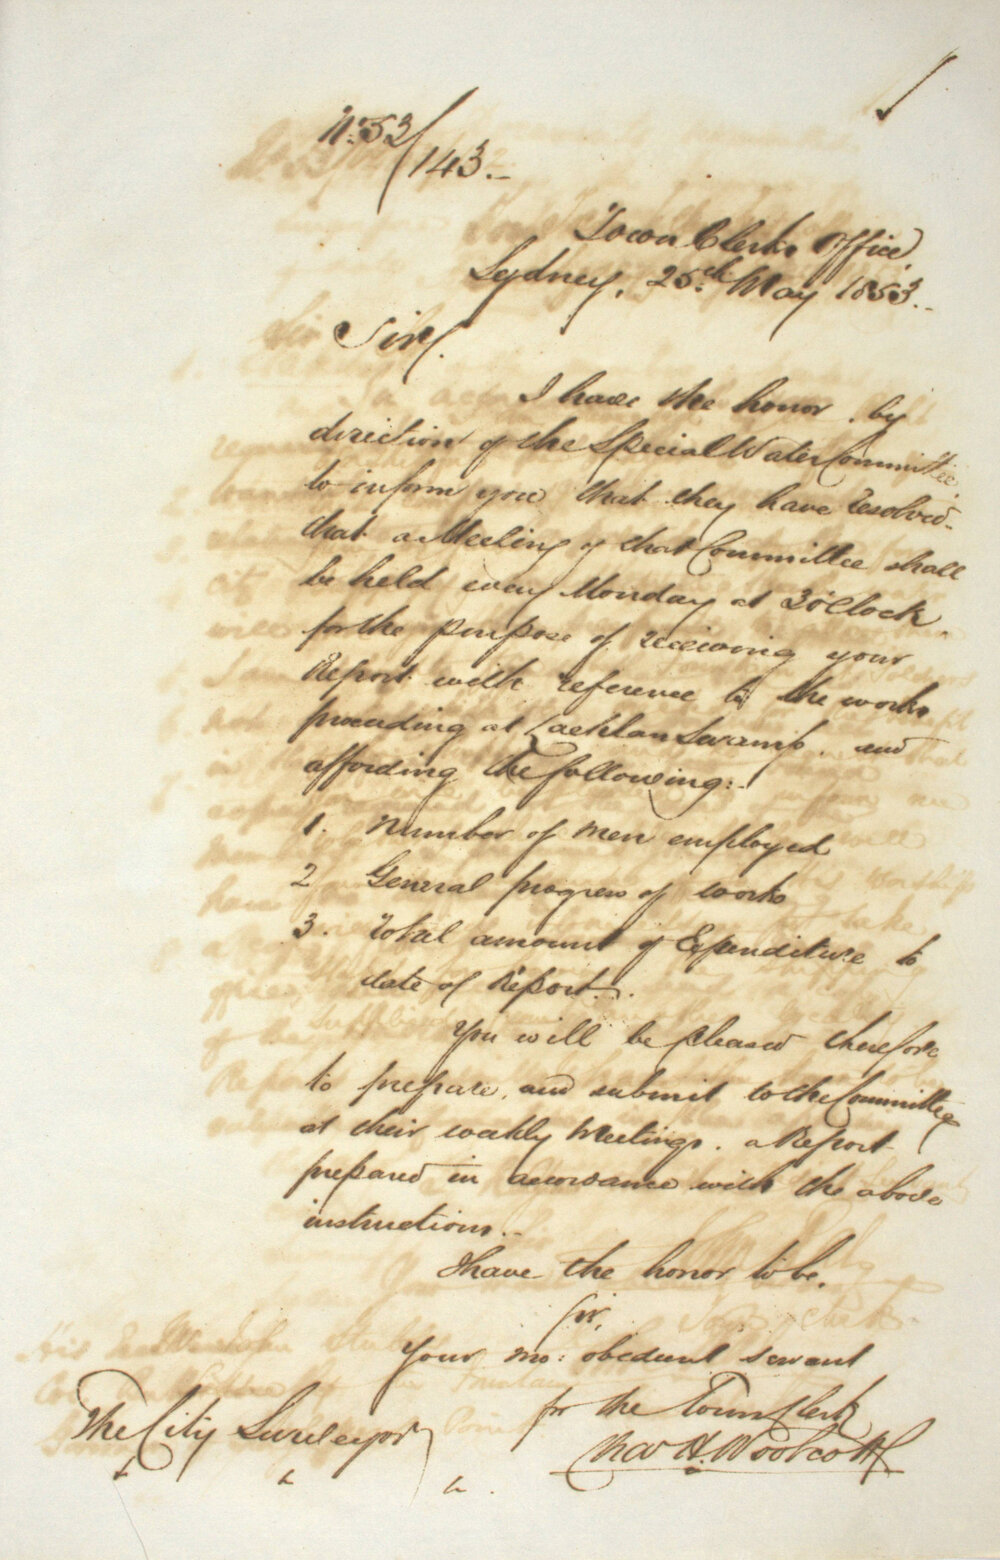 No. 53/143.
Town Clerks Office,
Sydney, 25th May 1853.
Sir,
I have the honor by
direction of the Special Water Committee,
to inform you that they have resolved
that a Meeting of that Committee shall
be held every Monday at 3 oClock
for the purpose of receiving your
Report with reference to the works
proceeding at Lachlan Swamp. and
affording the following:-
1. Number of men employed
2 General progress of works
3. Total amount of Expenditure to
date of Report.
You will be pleased therefore
to prepare, and submit to the Committee
at their weekly Meetings. a Report
prepared in accordance with the above
instructions.-
I have the honor to be,
Sir,
Your mo: obedient servant
for the Town Clerk
H. Woolcott
The City Surveyor